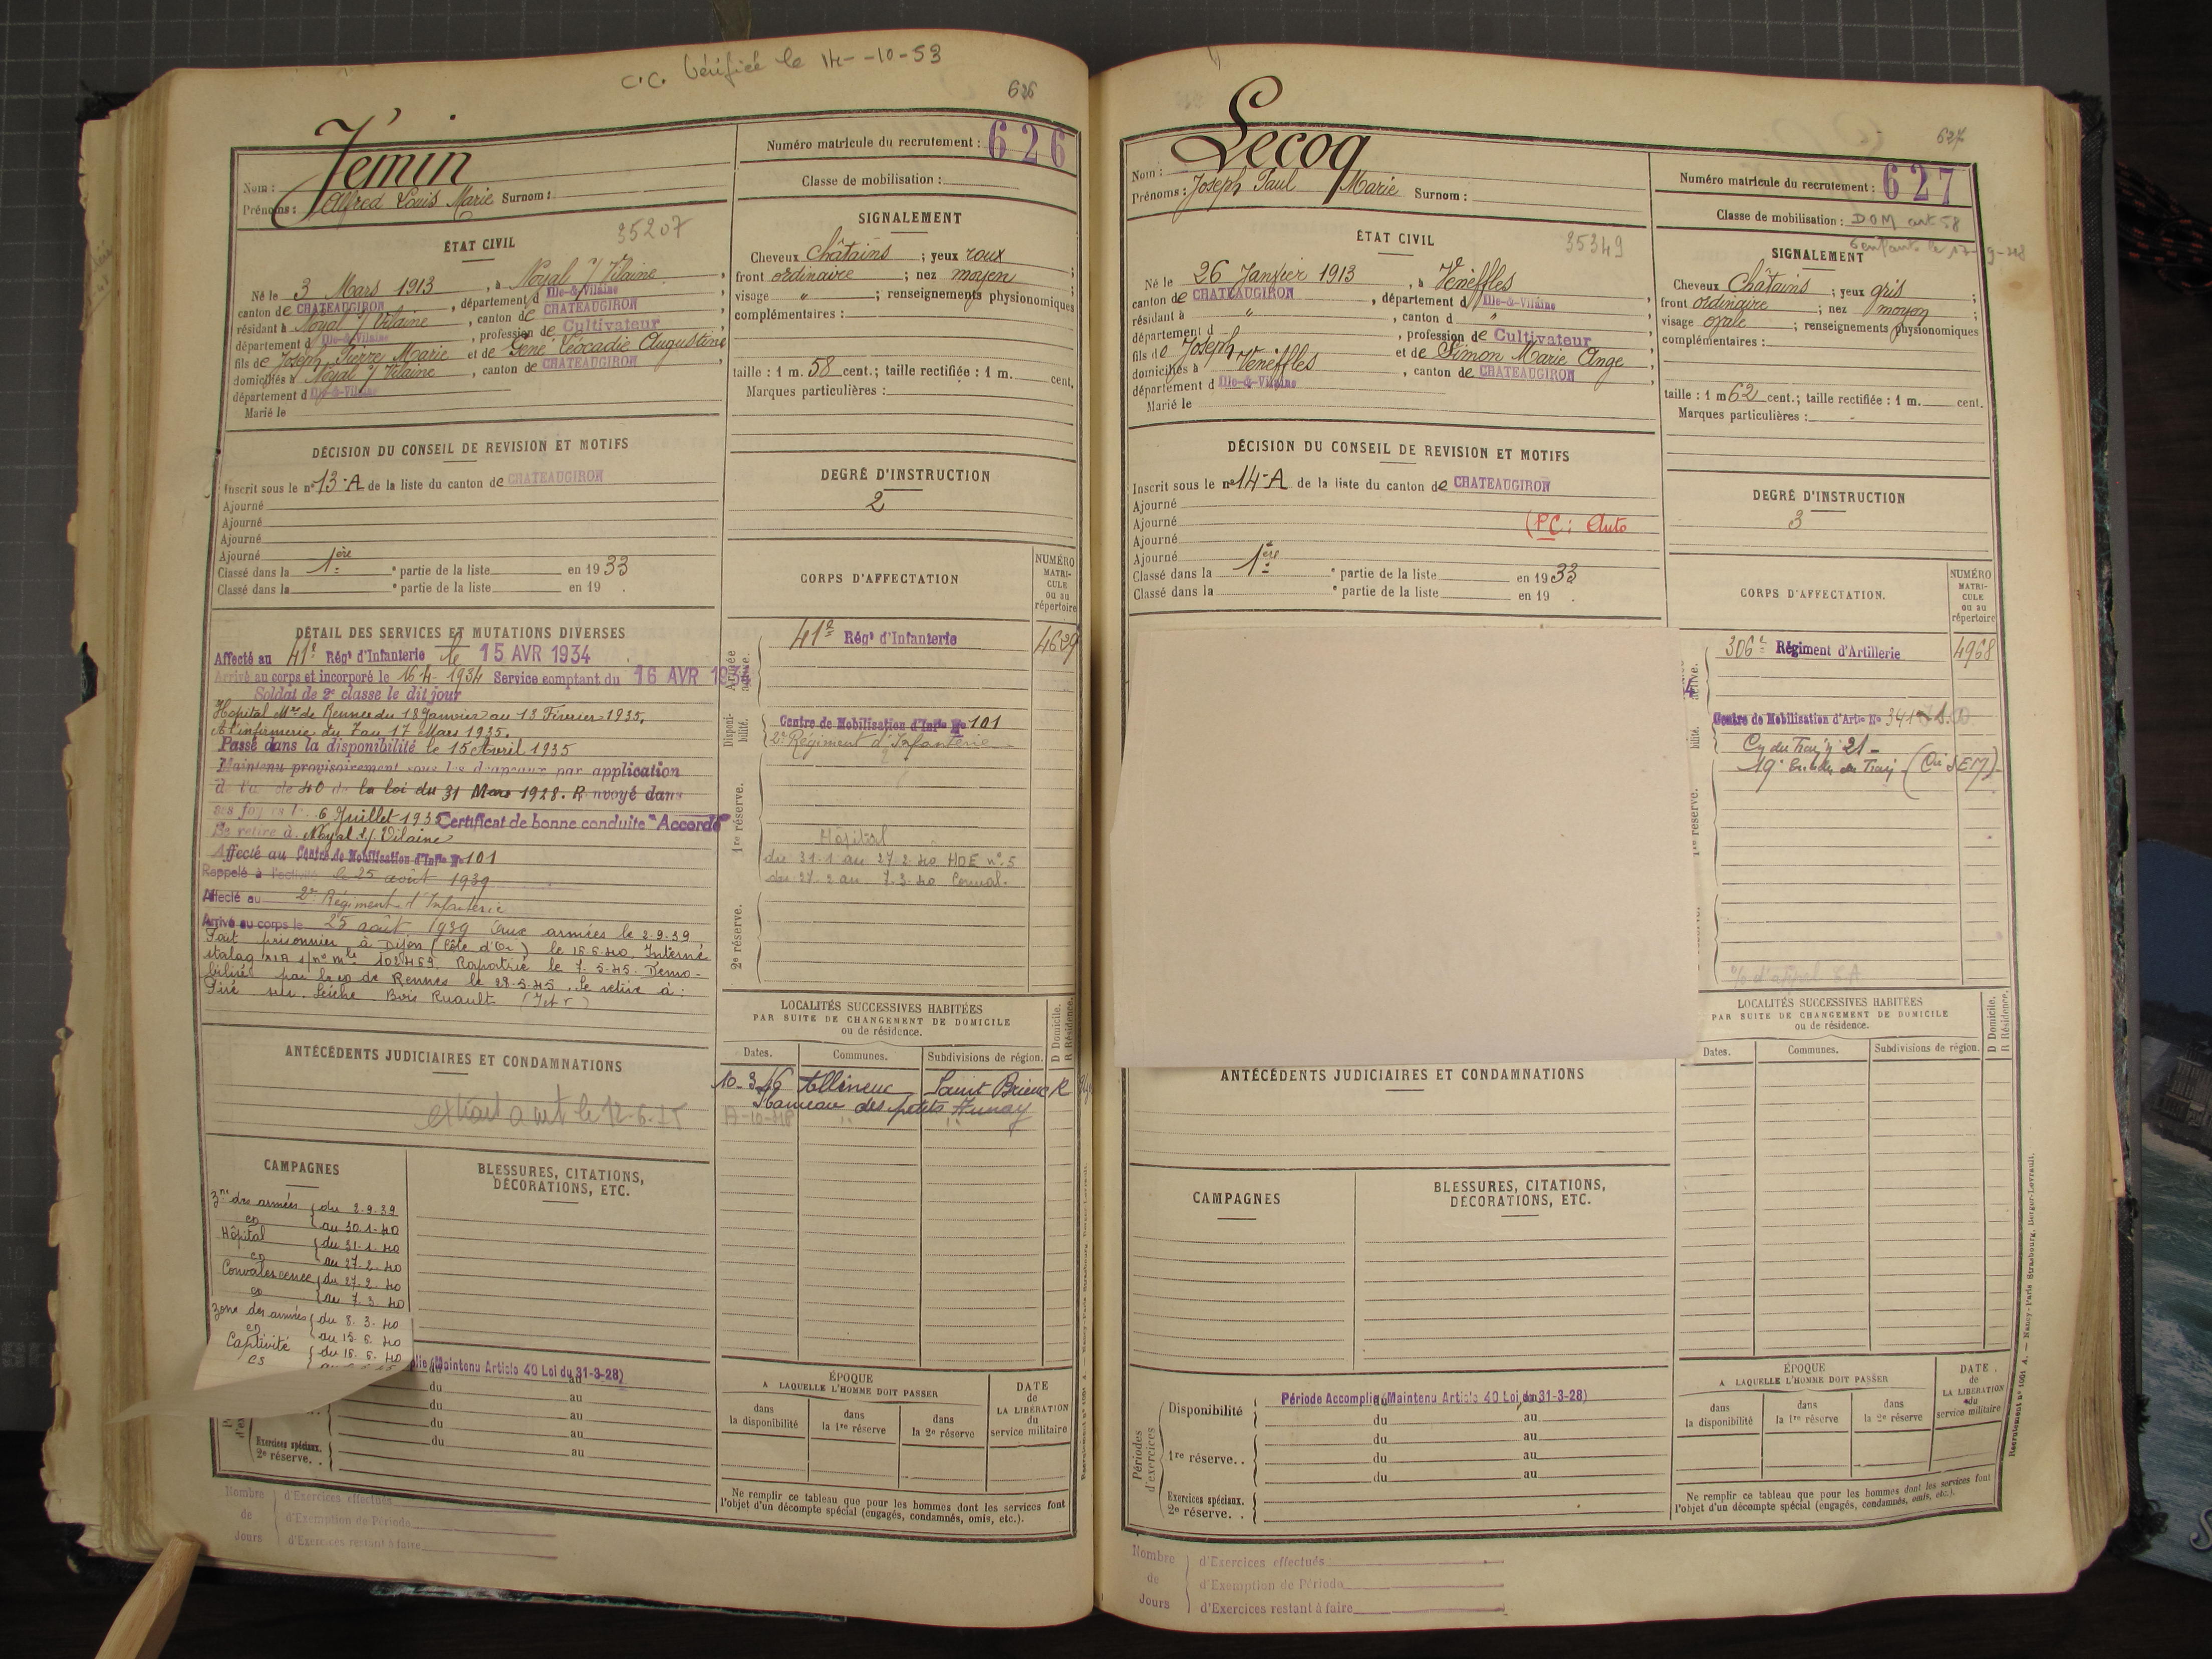 C.C. Vérifiée le 14-10-53
626
Jémin
Nom :
Prénoms : Alfred Louis Marie Surnom :
Numéro matricule du recrutement : 626
Classe de mobilisation :
35207
ÉTAT CIVIL
Né le 3 Mars 1913, à Noyal s/ Vilaine,
canton de CHATEAUGIRON, département d Ille-&-Vilaine
résidant à Noyal s/ Vilaine, canton de CHATEAUGIRON
département d Ille-&-Vilaine, profession de Cultivateur
fils de Joseph Pierre Marie et de Gené Léocadie Augustine
domiciliés à Noyal s/ Vilaine, canton de CHATEAUGIRON,
département d Ille-&-Vilaine
Marié le
SIGNALEMENT
Cheveux châtains ; yeux roux ;
front ordinaire ; nez moyen ;
visage " ; renseignements physionomiques
complémentaires :
taille : 1 m. 58 cent.; taille rectifiée : 1 m. cent.
Marques particulières :
DÉCISION DU CONSEIL DE REVISION ET MOTIFS
Inscrit sous le n° 13-A de la liste du canton de CHATEAUGIRON
Ajourné
Ajourné
Ajourné
Ajourné
Classé dans la 1ère e partie de la liste en 1933
Classé dans la e partie de la liste en 19 .
DEGRÉ D'INSTRUCTION
2
DÉTAIL DES SERVICES ET MUTATIONS DIVERSES
Affecté au 41e Régt d'Infanterie le 15 AVR 1934
Arrivé au corps et incorporé le 16-4-1934 Service comptant du 16 AVR 1934
Soldat de 2e classe le dit jour
Hopital Mre de Rennes du 18 Janvier au 13 Février 1935.
A l'infirmerie du 7 au 17 Mars 1935.
Passé dans la disponibilité le 15 Avril 1935
Maintenu provisoirement sous les drapeaux par application
de l'art de 40 de la loi du 31 Mars 1928. Renvoyé dans
ses foyers le 6 Juillet 1935 Certificat de bonne conduite "Accordé"
Se retire à Noyal s/ Vilaine
Affecté au Centre de Mobilisation d'Infie N° 101
Rappelé à l'activité le 25 août 1939
Affecté au 2e Régiment d'Infanterie
Arrivé au corps le 25 août 1939 aux armées le 2-9-39
Fait prisonnier à Dijon (Côte d'Or) le 16.6.40. Interné
stalag XIA s/ n° mle 102469. Rapatrié le 7.5.45. Démo-
bilisé par le CD de Rennes le 28-5-45. Se retire à :
Piré sur Seiche Bois Ruault (I et V)
CORPS D'AFFECTATION
NUMÉRO MATRI-CULE ou au répertoire
Armée active.
41e Régt d'Infanterie 4639
Disponibilité.
Centre de Mobilisation d'Infie N° 101
2e Régiment d'Infanterie
1re réserve.
Hôpital
du 31-1 au 27.2.40 HOE n° 5
du 27.2 au 7.3.40 Conval.
2e réserve.
ANTÉCÉDENTS JUDICIAIRES ET CONDAMNATIONS
LOCALITÉS SUCCESSIVES HABITÉES
PAR SUITE DE CHANGEMENT DE DOMICILE
ou de résidence.
Dates. Communes. Subdivisions de région. D Domicile. R Résidence.
10-3-46 Allineuc Saint Brieuc R
Hameau des petits Aunay
CAMPAGNES
Zne des armées du 2-9-39
co au 30-1-40
Hôpital du 31-1-40
co au 27-2-40
Convalescence du 27-2-40
co au 7-3-40
Zone des armées du 8.3.40
co au 15.6.40
Captivité du 16.6.40
cs
BLESSURES, CITATIONS,
DÉCORATIONS, ETC.
plie (Maintenu Article 40 Loi du 31-3-28)
du au
du au
du au
du au
Exercices spéciaux.
2e réserve. .
ÉPOQUE
A LAQUELLE L'HOMME DOIT PASSER
dans la disponibilité
dans la 1re réserve
dans la 2e réserve
DATE de LA LIBÉRATION du service militaire
Ne remplir ce tableau que pour les hommes dont les services font
l'objet d'un décompte spécial (engagés, condamnés, omis, etc.).
Nombre de Jours
d'Exercices effectués
d'Exemption de Période
d'Exercices restant à faire
627
Lecoq
Nom :
Prénoms : Joseph Paul Marie Surnom :
Numéro matricule du recrutement : 627
Classe de mobilisation : DOM art 58
6 enfants le
35349
ÉTAT CIVIL
Né le 26 Janvier 1913, à Veneffles
canton de CHATEAUGIRON, département d Ille-&-Vilaine,
résidant à ", canton d "
département d , profession de Cultivateur
fils de Joseph et de Simon Marie Ange,
domiciliés à Veneffles, canton de CHATEAUGIRON,
département d Ille-&-Vilaine
Marié le
SIGNALEMENT
Cheveux Châtains ; yeux gris ;
front ordinaire ; nez moyen ;
visage ovale ; renseignements physionomiques
complémentaires :
taille : 1 m 62 cent.; taille rectifiée : 1 m. cent.
Marques particulières :
DÉCISION DU CONSEIL DE REVISION ET MOTIFS
Inscrit sous le n° 14-A de la liste du canton de CHATEAUGIRON
Ajourné
Ajourné (PC : Auto
Ajourné
Ajourné
Classé dans la 1ère e partie de la liste en 1933
Classé dans la e partie de la liste en 19 .
DEGRÉ D'INSTRUCTION
3
CORPS D'AFFECTATION.
NUMÉRO MATRI-CULE ou au répertoire
306e Régiment d'Artillerie 4968
Centre de Mobilisation d'Artie N° 341
Cie du Train 21
1re réserve.
ANTÉCÉDENTS JUDICIAIRES ET CONDAMNATIONS
LOCALITÉS SUCCESSIVES HABITÉES
PAR SUITE DE CHANGEMENT DE DOMICILE
ou de résidence.
Dates. Communes. Subdivisions de région. D Domicile. R Résidence.
CAMPAGNES
BLESSURES, CITATIONS,
DÉCORATIONS, ETC.
Périodes d'exercices
Disponibilité
Période Accomplie (Maintenu Article 40 Loi du 31-3-28)
du au
du au
1re réserve. . du au
du au
Exercices spéciaux.
2e réserve. .
ÉPOQUE
A LAQUELLE L'HOMME DOIT PASSER
dans la disponibilité
dans la 1re réserve
dans la 2e réserve
DATE de LA LIBÉRATION du service militaire
Ne remplir ce tableau que pour les hommes dont les services font
l'objet d'un décompte spécial (engagés, condamnés, omis, etc.).
Recrutement N° 1001 A. — Nancy-Paris-Strasbourg, Berger-Levrault.
Nombre de Jours
d'Exercices effectués
d'Exemption de Période
d'Exercices restant à faire